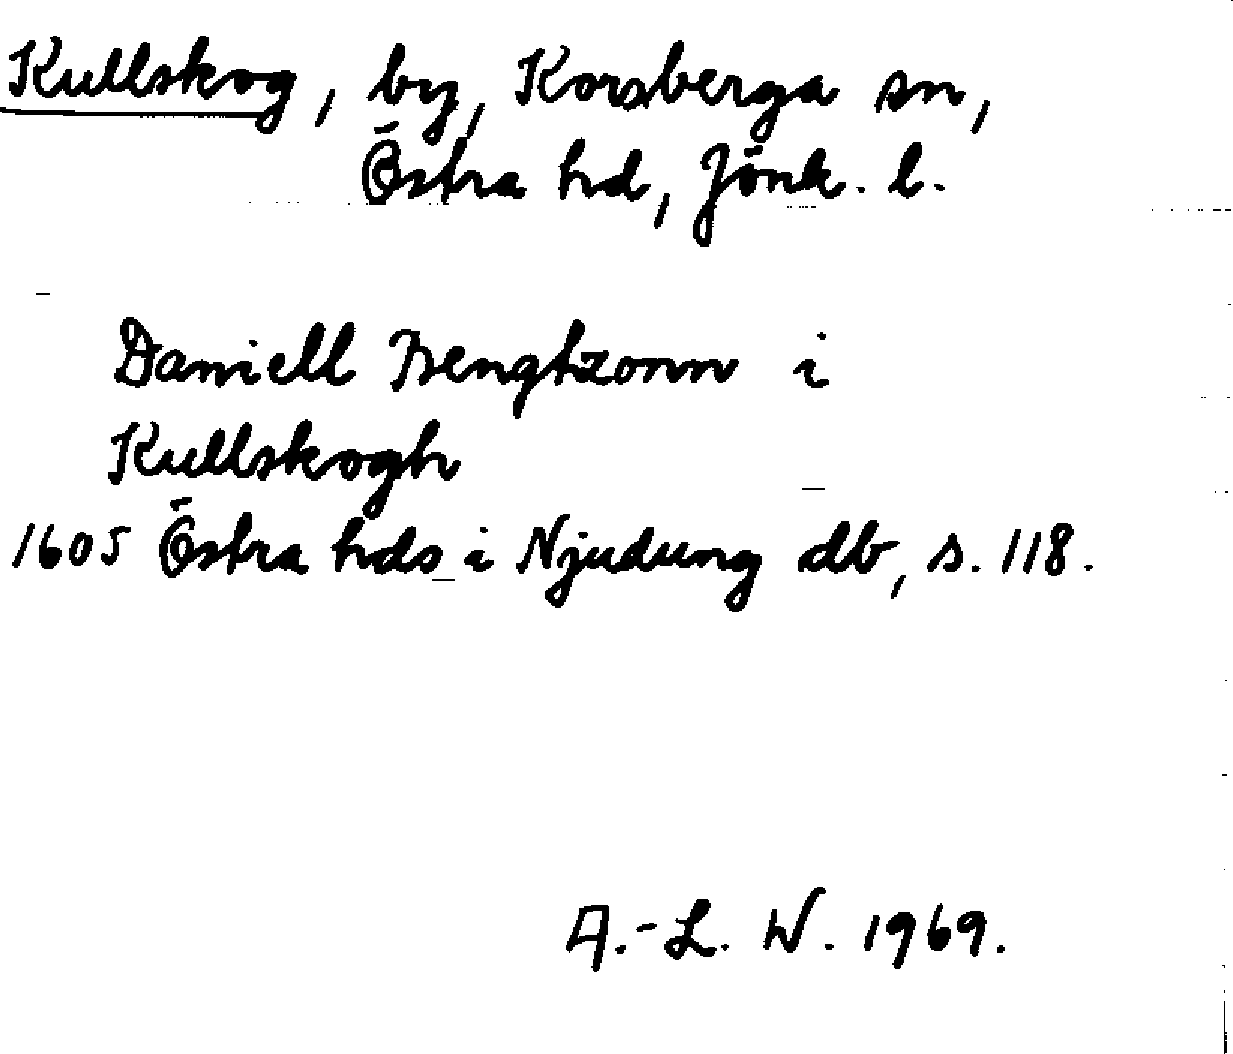 Kullskog, by, Korsberga sn,
Östra hd, Jönk. l.
Daniell Bengtzonn i
Kullskogh
1605 Östra hds i Njudung db, s. 118.
A.-L. W. 1969.